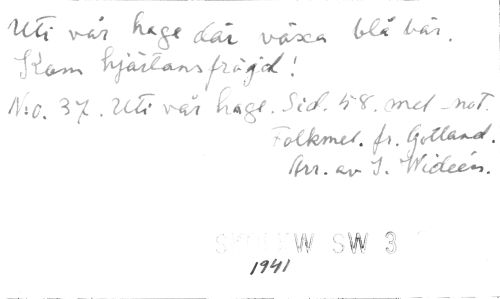 Uti vår hage där växa blå bär.
Kom hjärtansfröjd!
N:o. 37. Uti vår hage. Sid. 58. mel-not.
Folkmel. fr. Gotland.
Arr. av I. Widéen.
SW 3
1941